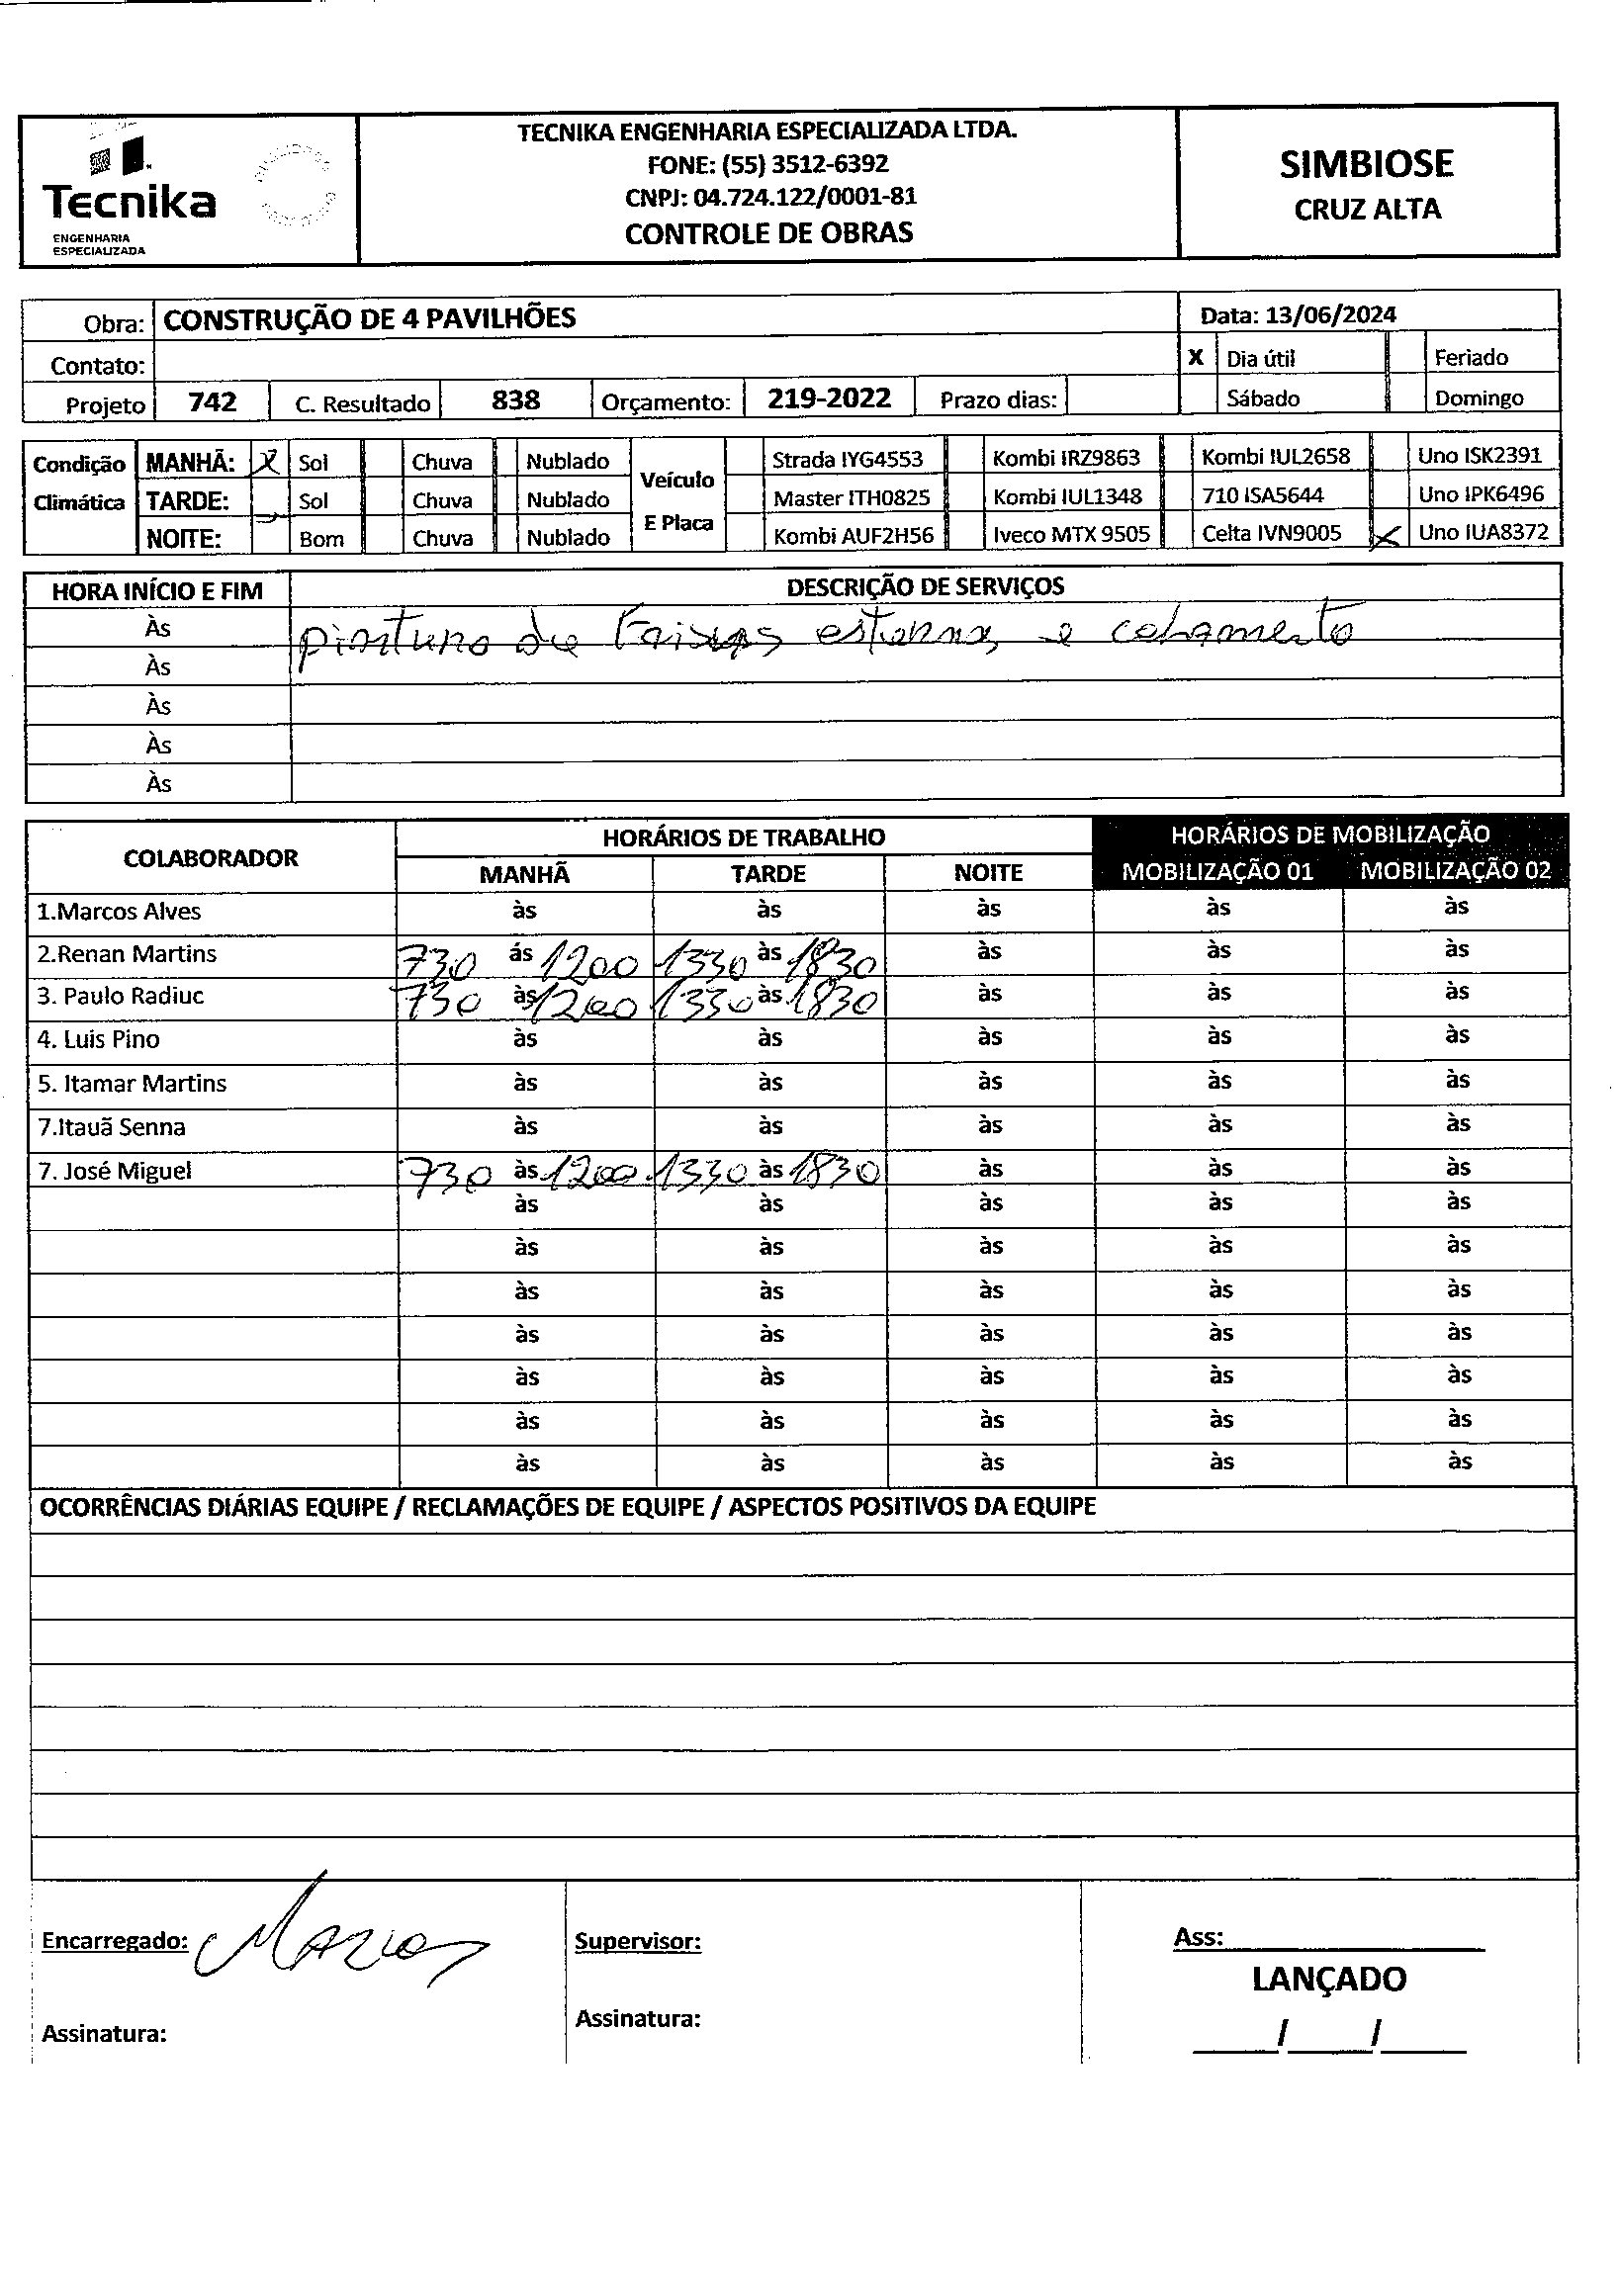 Tecnika
ENGENHARIA
ESPECIALIZADA
TECNIKA ENGENHARIA ESPECIALIZADA LTDA.
FONE: (55) 3512-6392
CNPJ: 04.724.122/0001-81
CONTROLE DE OBRAS
SIMBIOSE
CRUZ ALTA
Obra: CONSTRUÇÃO DE 4 PAVILHÕES Data: 13/06/2024
Contato: X Dia útil Feriado
Projeto 742 C. Resultado 838 Orçamento: 219-2022 Prazo dias: Sábado Domingo
Condição Climática Veículo E Placa
MANHÃ: X Sol Chuva Nublado Strada IYG4553 Kombi IRZ9863 Kombi IUL2658 Uno ISK2391
TARDE: Sol Chuva Nublado Master ITH0825 Kombi IUL1348 710 ISA5644 Uno IPK6496
NOITE: Bom Chuva Nublado Kombi AUF2H56 Iveco MTX 9505 Celta IVN9005 X Uno IUA8372
HORA INÍCIO E FIM DESCRIÇÃO DE SERVIÇOS
Às pintura de e
Às
Às
Às
Às
COLABORADOR HORÁRIOS DE TRABALHO HORÁRIOS DE MOBILIZAÇÃO
MANHÃ TARDE NOITE MOBILIZAÇÃO 01 MOBILIZAÇÃO 02
1.Marcos Alves às às às às às
2.Renan Martins 730 ás 1200 1330 às 1830 às às às
3. Paulo Radiuc 730 às 1200 1330 às 1830 às às às
4. Luis Pino às às às às às
5. Itamar Martins às às às às às
7.Itauã Senna às às às às às
7. José Miguel 730 às 1200 1330 às 1830 às às às
às às às às às
às às às às às
às às às às às
às às às às às
às às às às às
às às às às às
às às às às às
OCORRÊNCIAS DIÁRIAS EQUIPE / RECLAMAÇÕES DE EQUIPE / ASPECTOS POSITIVOS DA EQUIPE
Encarregado: Marcos Supervisor: Ass:
LANÇADO
Assinatura: Assinatura: / /